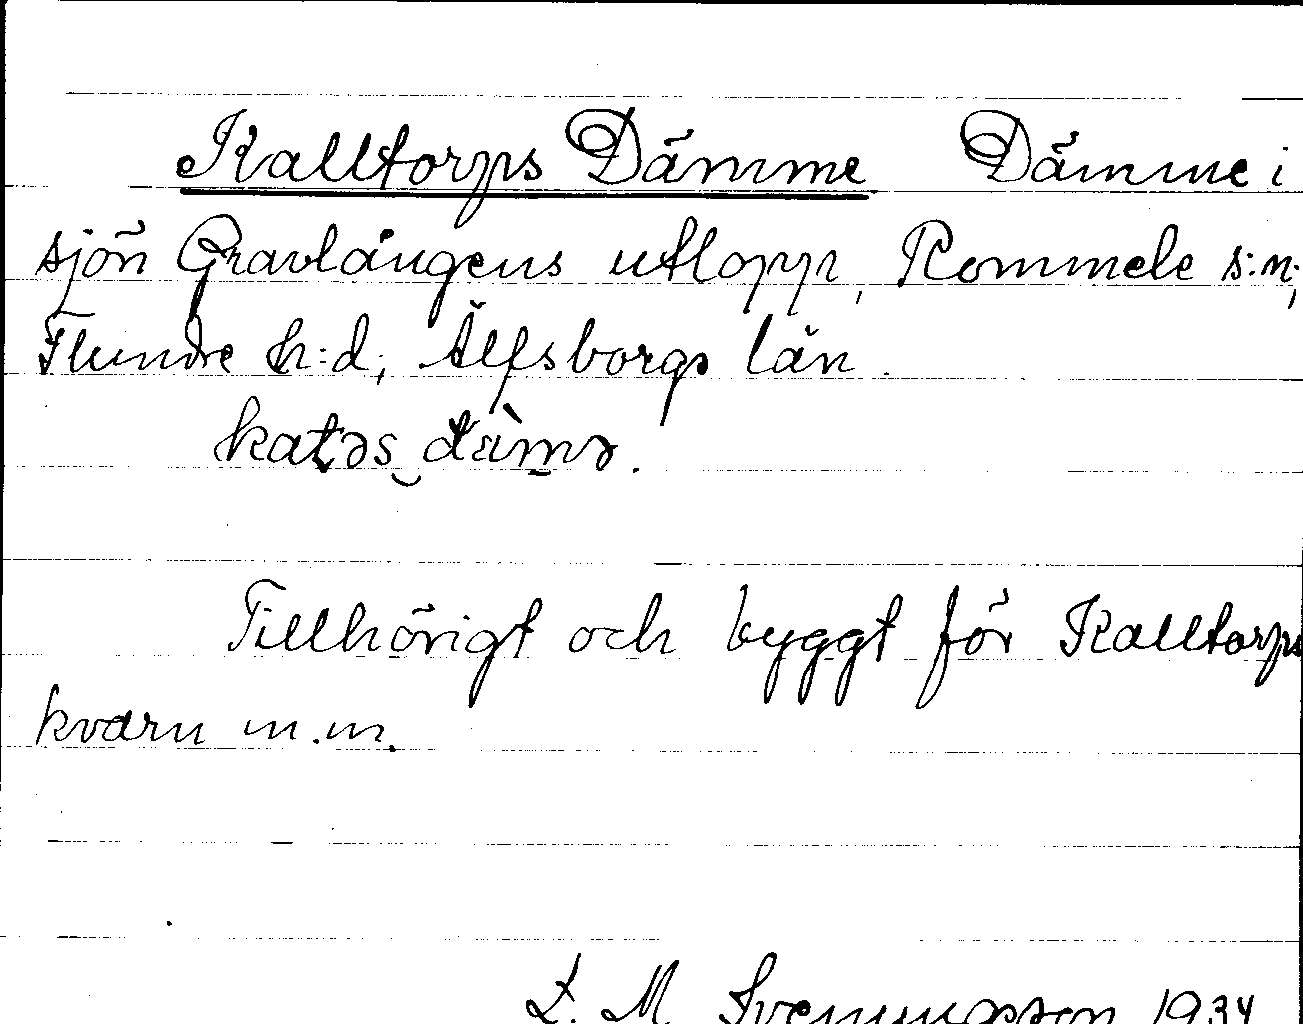 Kalltorps Dämme Dämme i
sjön Gravlångens utlopp, Rommele s:n;
Flundre h:d, Älfsborgs län.
Tillhörigt och byggt för Kalltorps
kvarn m.m.
M Svenungsson 1934